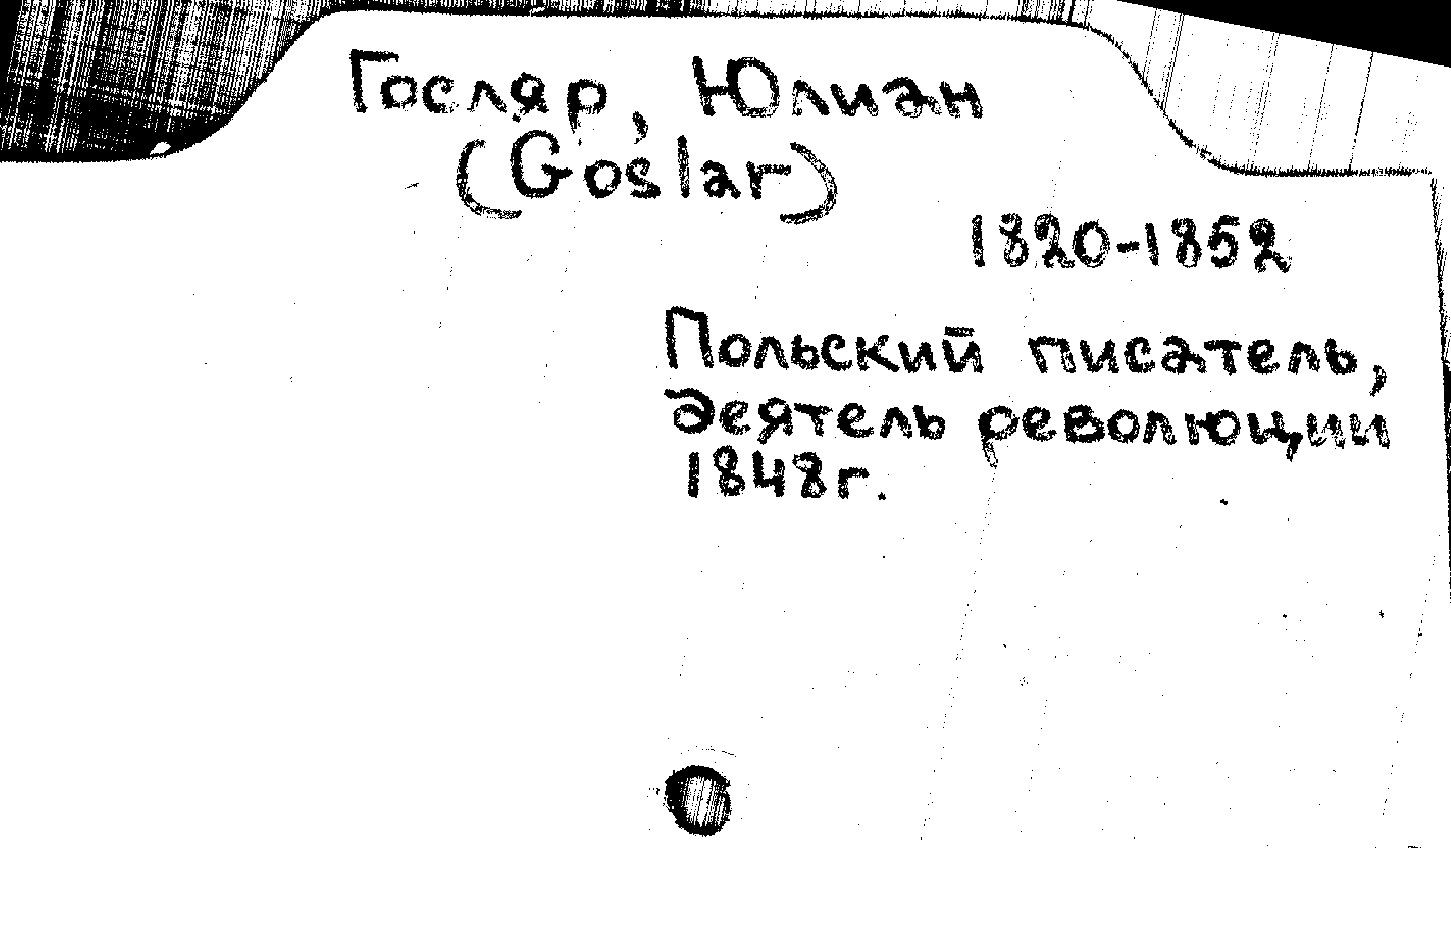 Госляр, Юлиан
(Goslar)
1820-1852
Польский писатель,
деятель революции
1848г.